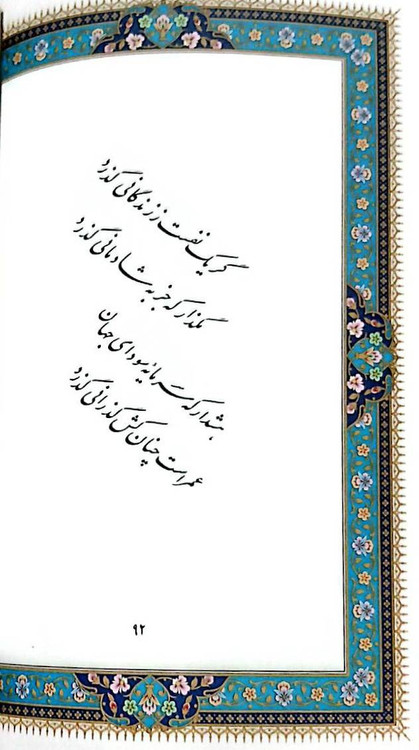 گر یک نفست ز زندگانی گذرد
مگذار که جز به شادمانی گذرد
هشدار که سرمایه سودای جهان
عمر است چنان کش گذرانی گذرد
۹۲